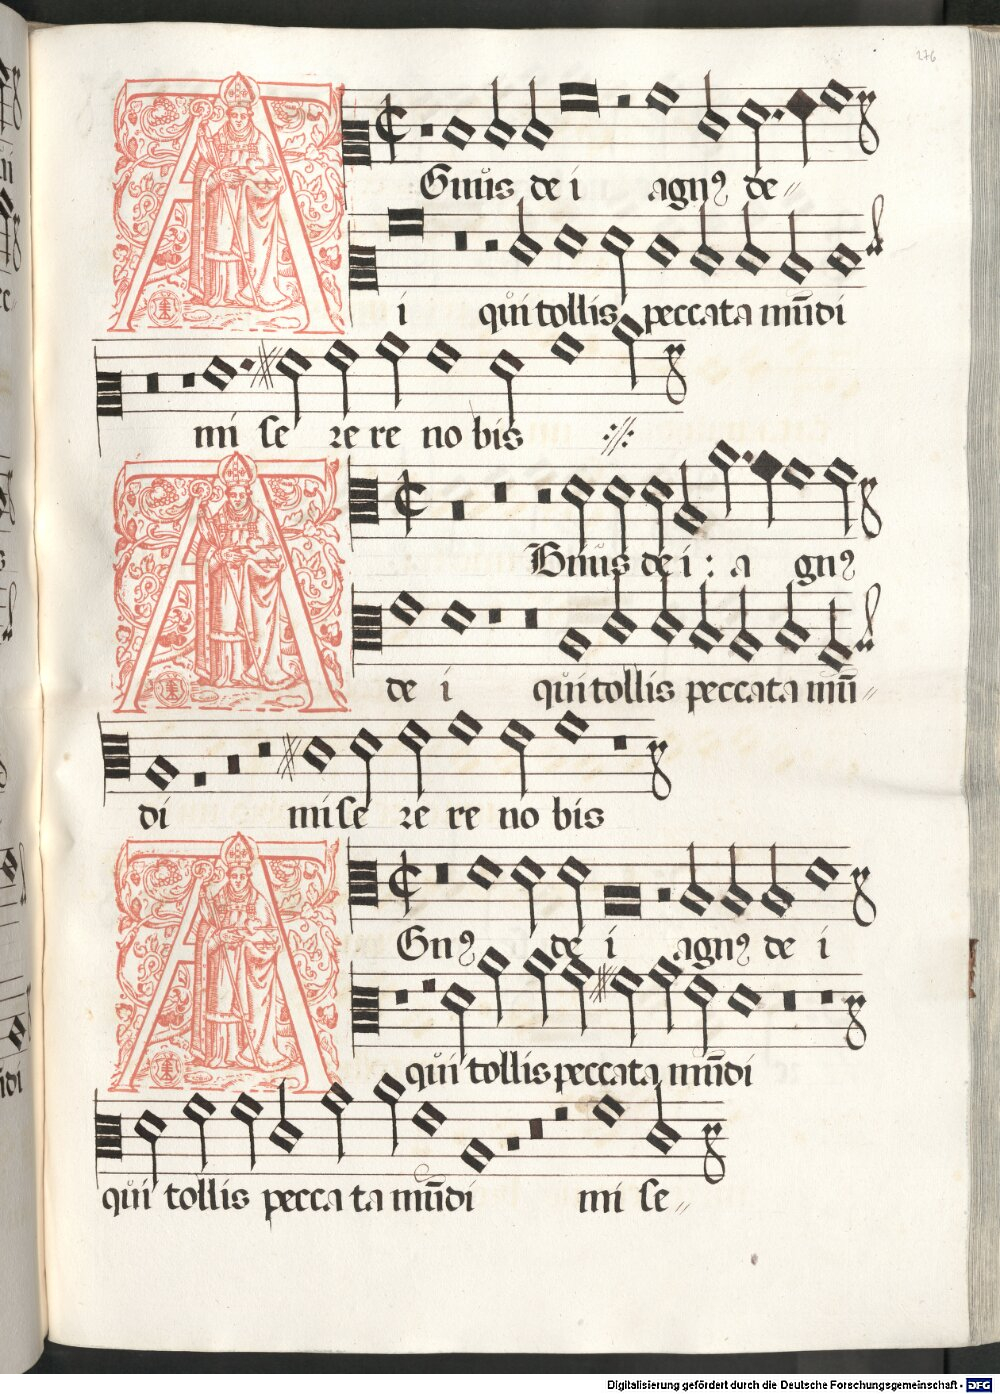 276
A Gnus de i agnꝰ de
i qui tollis peccata mūdi
mi se re re no bis
A Gnus de i : a gnꝰ
de i qui tollis peccata mū
di mi se re re no bis
A Gnꝰ de i agnꝰ de i
qui tollis peccata mūdi
qui tollis pecca ta mūdi mi se
Digitalisierung gefördert durch die Deutsche Forschungsgemeinschaft - DFG